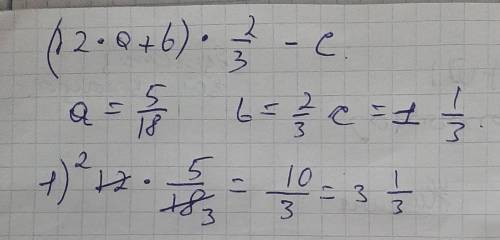 (12 · a + b) · 2/3 - c.
a = 5/18 b = 2/3 c = 1 1/3.
1) 2 12 · 5/18 3 = 10/3 = 3 1/3